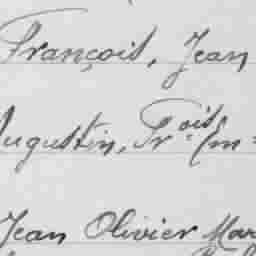 François, Jean
Augustin, Fr.ois Em
Jean Olivier Mar